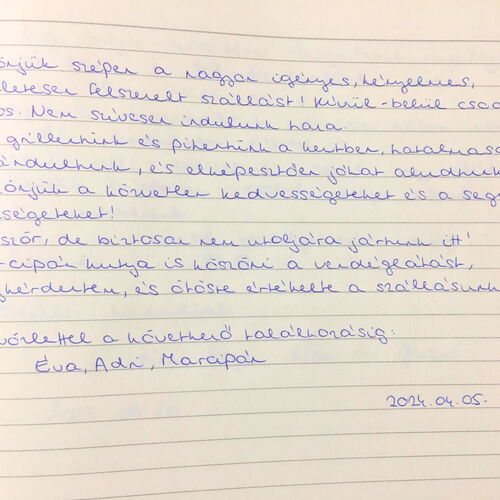 önjük szépen a nagyon igényes, kényelmes,
életesen felszerelt szállást! Kívül-belül csod
os. Nem szívesen indulunk haza.
grilleztünk és pihentünk a kertben, hatalmasa
ándultunk, és elképesztően jókat aludtunk
zönjük a közvetlen kedvességeteket és a seg
ségeteket!
ször, de biztosan nem utoljára jártunk itt!
rcipán kutya is köszöni a vendéglátást,
gkérdeztem, és ötösre értékelte a szállásunk
vözlettel a következő találkozásig:
Éva, Adri, Marcipán
2024.04.05.